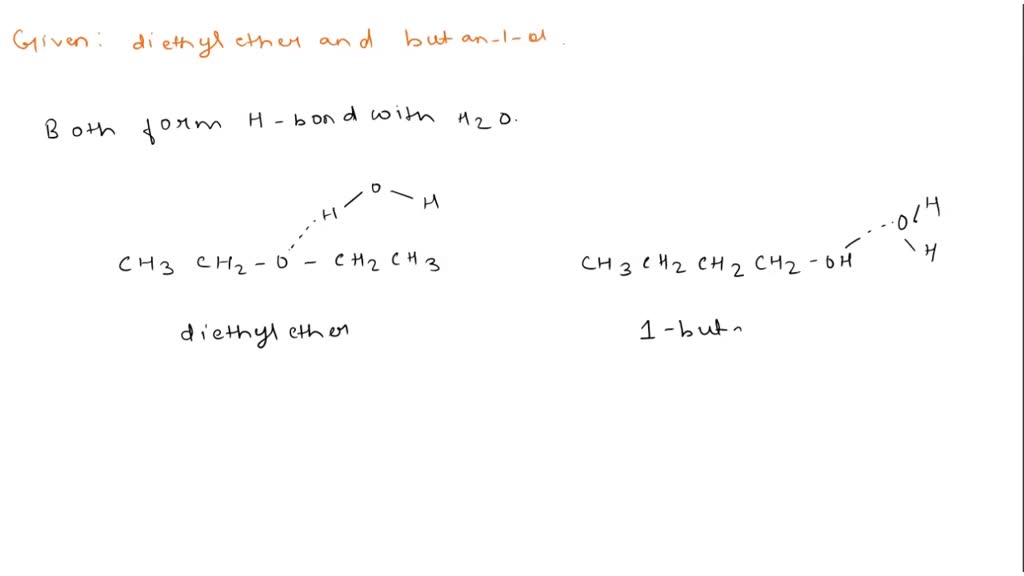 Given: diethyl ether and butan-1-ol.
Both form H-bond with H2O.
H O H
CH3 CH2-O-CH2 CH3
diethyl ether
O H
H
CH3 CH2 CH2 CH2-OH
1-but